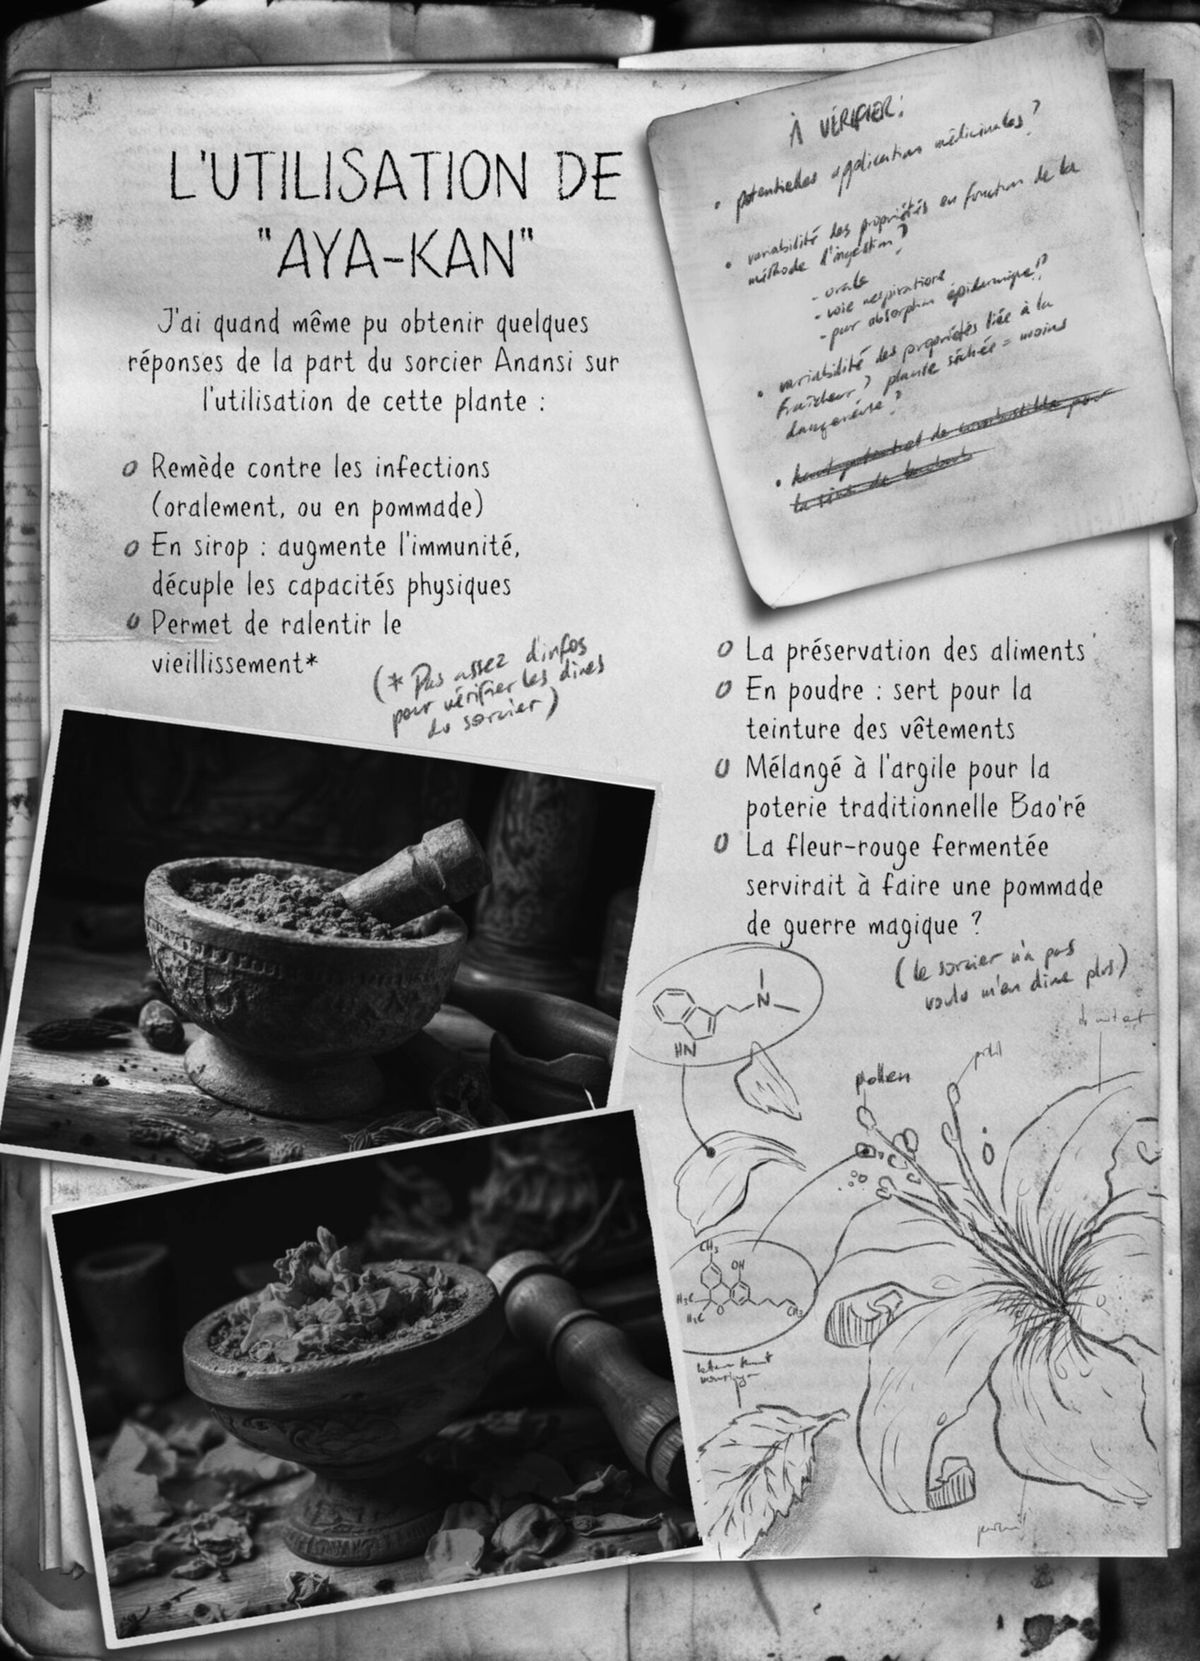 L'UTILISATION DE
"AYA-KAN"
J'ai quand même pu obtenir quelques
réponses de la part du sorcier Anansi sur
l'utilisation de cette plante :
Remède contre les infections
(oralement, ou en pommade)
En sirop : augmente l'immunité,
décuple les capacités physiques
Permet de ralentir le
vieillissement*
(* Pas assez d'infos
pour vérifier les dires
du sorcier)
À VÉRIFIER:
• potentielles application médicinales ?
• variabilité des propriétés en fonction de la
méthode d'ingestion ?
- orale
- voie respiratoire
- par absorption épidermique !?
• variabilité des propriétés liée à la
fraîcheur ? plante séchée = moins
dangereuse ?
• potentiel de combustible pour
La préservation des aliments
En poudre : sert pour la
teinture des vêtements
Mélangé à l'argile pour la
poterie traditionnelle Bao'ré
La fleur-rouge fermentée
servirait à faire une pommade
de guerre magique ?
(le sorcier n'a pas
voulu m'en dire plus)
N
HN
pollen
pistil
CH3
OH
H3C
H3C
O
CH3